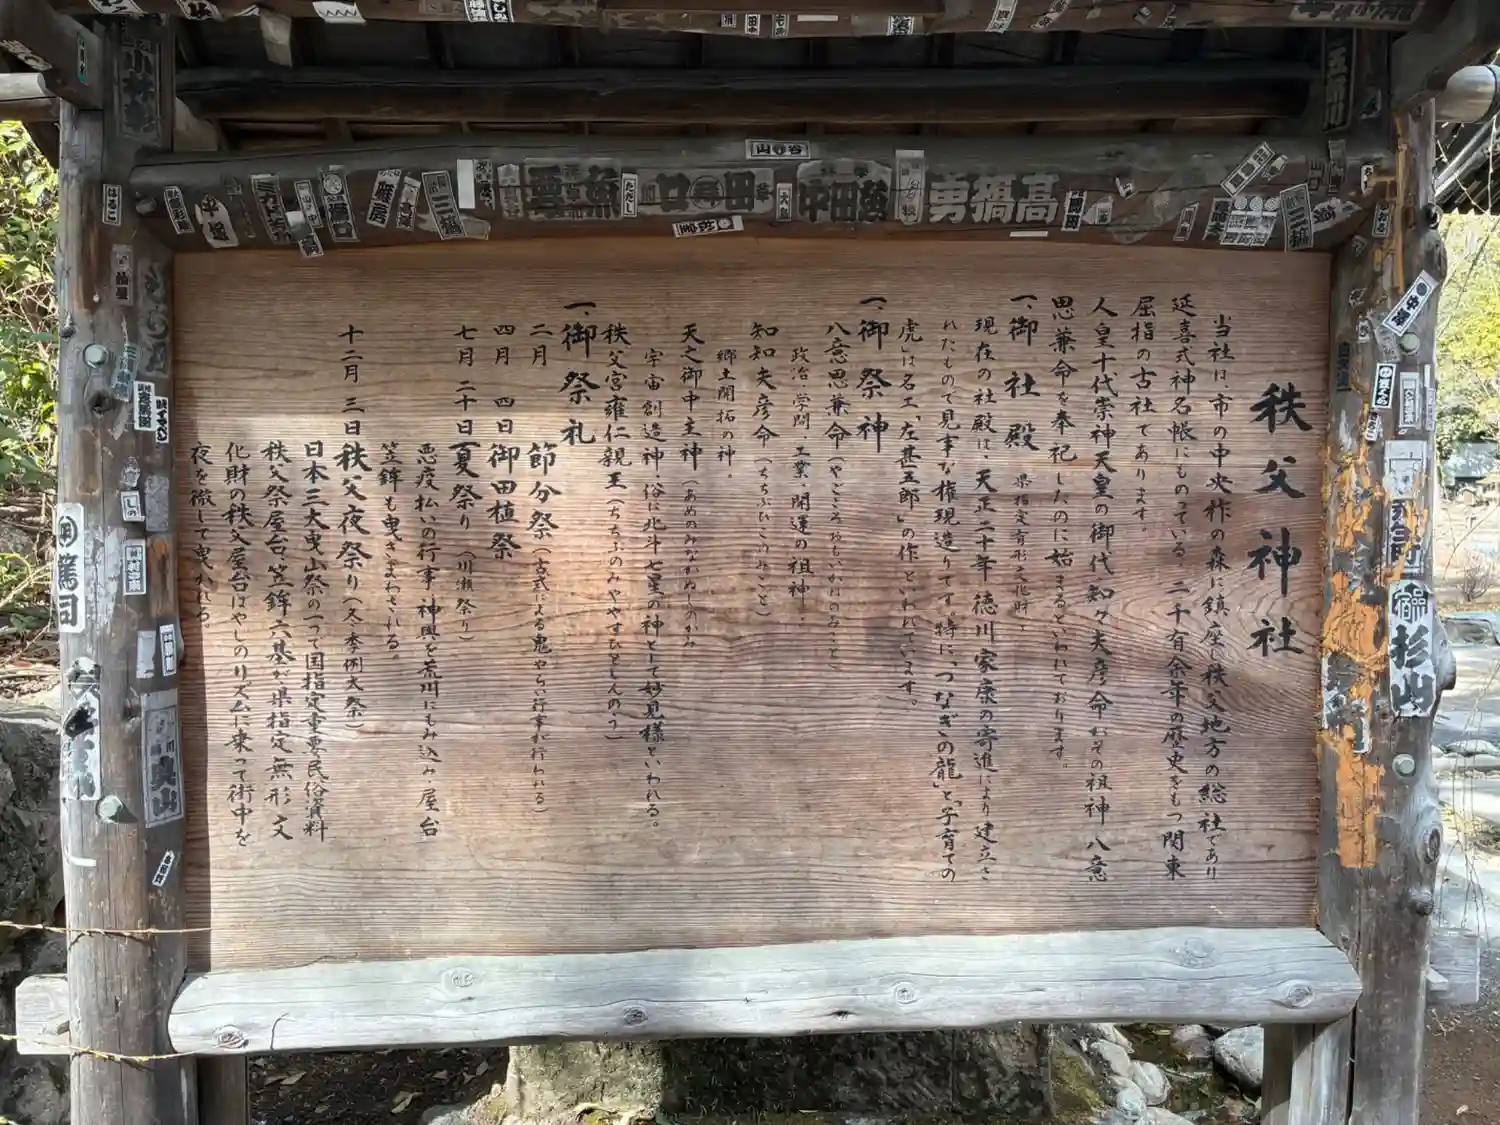 秩父神社
当社は、市の中央柞の森に鎮座し秩父地方の総社であり
延喜式神名帳にものっている。二千有余年の歴史をもつ関東
屈指の古社であります。
人皇十代崇神天皇の御代知々夫彦命がその祖神八意
思兼命を奉祀したのに始まるといわれております。
一、御社殿 県指定有形文化財、
現在の社殿は、天正二十年、徳川家康の寄進により建立さ
れたもので見事な権現造りです。特に「つなぎの龍」と「子育ての
虎」は名工「左甚五郎」の作、といわれています。
一、御祭神
八意思兼命(やごころおもいかねのみこと)
政治、学問、工業、開運の祖神、
知知夫彦命(ちちぶひこのみこと)
郷土開拓の神。
天之御中主神(あめのみなかぬしのかみ
宇宙創造神、俗に北斗七星の神として妙見様といわれる。
秩父宮雍仁親王(ちちぶのみややすひとしんのう)
一、御祭礼
二月 節分祭(古式による鬼やらい行事が行われる)
四月 四日 御田植祭
七月 二十日 夏祭り(川瀬祭り)
悪疫払いの行事、神輿を荒川にもみ込み、屋台
笠鉾も曳きまわされる。
十二月 三日 秩父夜祭り(冬季例大祭)
日本三大曳山祭の一つで国指定重要民俗資料
秩父祭屋台、笠鉾六基が県指定無形文
化財の秩父屋台ばやしのリズムに乗って街中を
夜を徹して曳かれる。
山谷
雲魚
田中
高橋勇
三橋
雅房
橋口
はるこ
ただし
三橋
篤司
杉山
奥山
しの